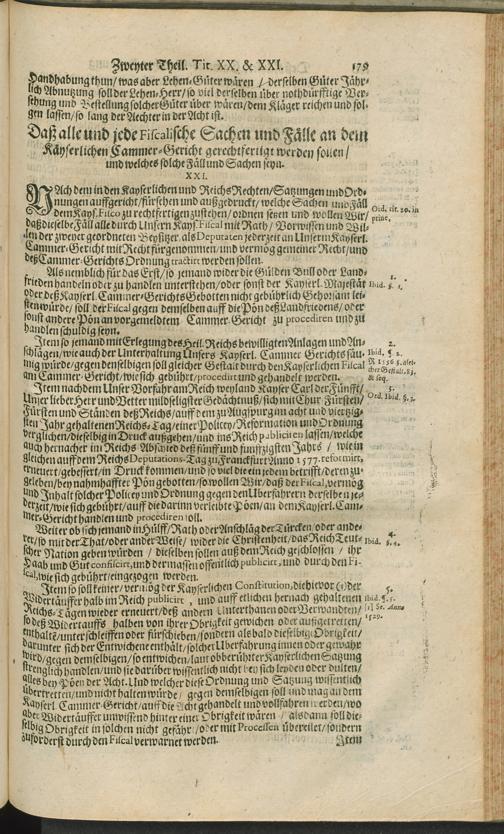 Zweyter Theil. Tit. XX, & XXI. 179
Handhabung thun/ was aber Lehen-Güter wären / derselben Güter Jähr-
lich Abnutzung soll der Lehen-Herr/ so viel derselben über nothdürfftige Ver-
sehung und Bestellung solcher Güter über wären/ dem Kläger reichen und fol-
gen lassen/ so lang der Aechter in der Acht ist.
Daß alle und jede Fiscalische Sachen und Fälle an dem
Käyserlichen Cammer-Gericht gerechtfertigt werden sollen/
und welches solche Fäll und Sachen seyn.
XXI.
NAch dem in den Kayserlichen und Reichs Rechten/ Satzungen und Ord-
nungen auffgericht/ fürsehen und außgedruckt/ welche Sachen und Fäll
dem Kays. Fisco zu rechtfertigen zustehen/ ordnen setzen und wollen Wir/
daß dieselbe Fäll alle durch Unsern Kays. Fiscal mit Rath / Vorwissen und Wil-
len der zweyer geordneten Beysitzer, als Deputaten jederzeit an Unserm Kayserl.
Cammer-Gericht mit Recht fürgenommen/ und vermög gemeiner Recht/ und
deß Cammer-Gerichts Ordnung tractirt werden sollen.
Ord. tit. 20. in
princ.
Als nemblich für das Erst/ so jemand wider die Gülden Bull oder Land-
frieden handeln oder zu handlen unterstehen/ oder sonst der Kayserl. Majestät
oder deß Kayserl. Cammer-Gerichts Gebotten nicht gebührlich Gehorsam lei-
sten würde/ soll der Fiscal gegen demselben auff die Pön deß Landfriedens/ oder
sonst andere Pön an vorgemeldtem Cammer-Gericht zu procediren und zu
handlen schuldig seyn.
1.
Ibid. §. 1.
Item so jemand mit Erlegung des Heil. Reichs bewilligten Anlagen und An-
schlägen/ wie auch der Unterhaltung Unsers Kayserl. Cammer Gerichts säu-
mig würde/ gegen denselbigen soll gleicher Gestalt durch den Kayserlichen Fiscal
am Cammer-Gericht/ wie sich gebührt/ procedirt und gehandelt werden.
2.
Ibid. §. 2.
Item nachdem Unser Vorfahr am Reich weyland Kayser Carl der Fünfft/
Unser lieber Herr und Vetter mildseligster Gedächtnuß/ sich mit Chur Fürsten/
Fürsten und Ständen deß Reichs/ auff dem zu Augspurg im acht und viertzig-
sten Jahr gehaltenen Reichs-Tag/ einer Policey/ Reformation und Ordnung
verglichen/ dieselbig in Druck außgehen/ und ins Reich publiciren lassen/ welche
auch hernacher im Reichs Abschied deß fünff und funffzigsten Jahrs / wie in
gleichen auff dem Reichs Deputations-Tag zu Franckfurt Anno 1577. reformirt,
erneuert/ gebessert/ in Druck kommen/ und so viel die ein jedem betrifft/ deren zu-
geleben/ bey nahmhaffter Pön gebotten/ so wollen Wir/ daß der Fiscal, vermög
und Inhalt solcher Policey und Ordnung gegen den Uberfahrern derselben je-
derzeit/ wie sich gebührt/ auff die darinn verleibte Pöen/ an dem Kayserl. Cam-
mer-Gericht handlen und procediren soll.
3.
Ord. Ibid. §. 3.
Weiter ob sich jemand in Hülff/ Rath oder Anschläg der Türcken/ oder ande-
rer/ so mit der That/ oder ander Weise/ wider die Christenheit/ das Reich Teut-
scher Nation geben würden / dieselben sollen auß dem Reich geschlossen / ihr
Haab und Gut confiscirt, und dermassen offentlich publicirt, und durch den Fi-
scal, wie sich gebührt/ eingezogen werden.
4.
Ibid. §. 4.
Item so soll keiner/ vermög der Kayserlichen Constitution, die hievor (1) der
Widertäuffer halb im Reich publicirt , und auff etlichen hernach gehaltenen
Reichs-Tägen wieder erneuert/ deß andern Unterthanen oder Verwandten/
so deß Widertauffs halben von ihrer Obrigkeit gewichen oder außgetretten/
enthalten/ unterschleiffen oder fürschieben/ sondern als bald dieselbige Obrigkeit/
darunter sich der Entwichene enthält/ solcher Uberfahrung innen oder gewahr
wird/ gegen demselbigen/ so entwichen/ laut obberührter Kayserlichen Satzung
strenglich handlen/ und sie darüber wissentlich nicht bey sich leyden oder dulten/
alles bey Pön der Acht. Und welcher diese Ordnung und Satzung wissentlich
übertretten/ und nicht halten würde/ gegen demselbigen soll und mag an dem
Kayserl. Cammer-Gericht/ auff die Acht gehandelt und vollfahren werden/ wo
aber Widertäuffer unwissend hinter einer Obrigkeit wären / alsdann soll die-
selbig Obrigkeit in solchen nicht gefähr/ oder mit Processen übereilet/ sondern
zuforderst durch den Fiscal verwarnet werden.
5.
Ibid. §. 5.
1529.
Item